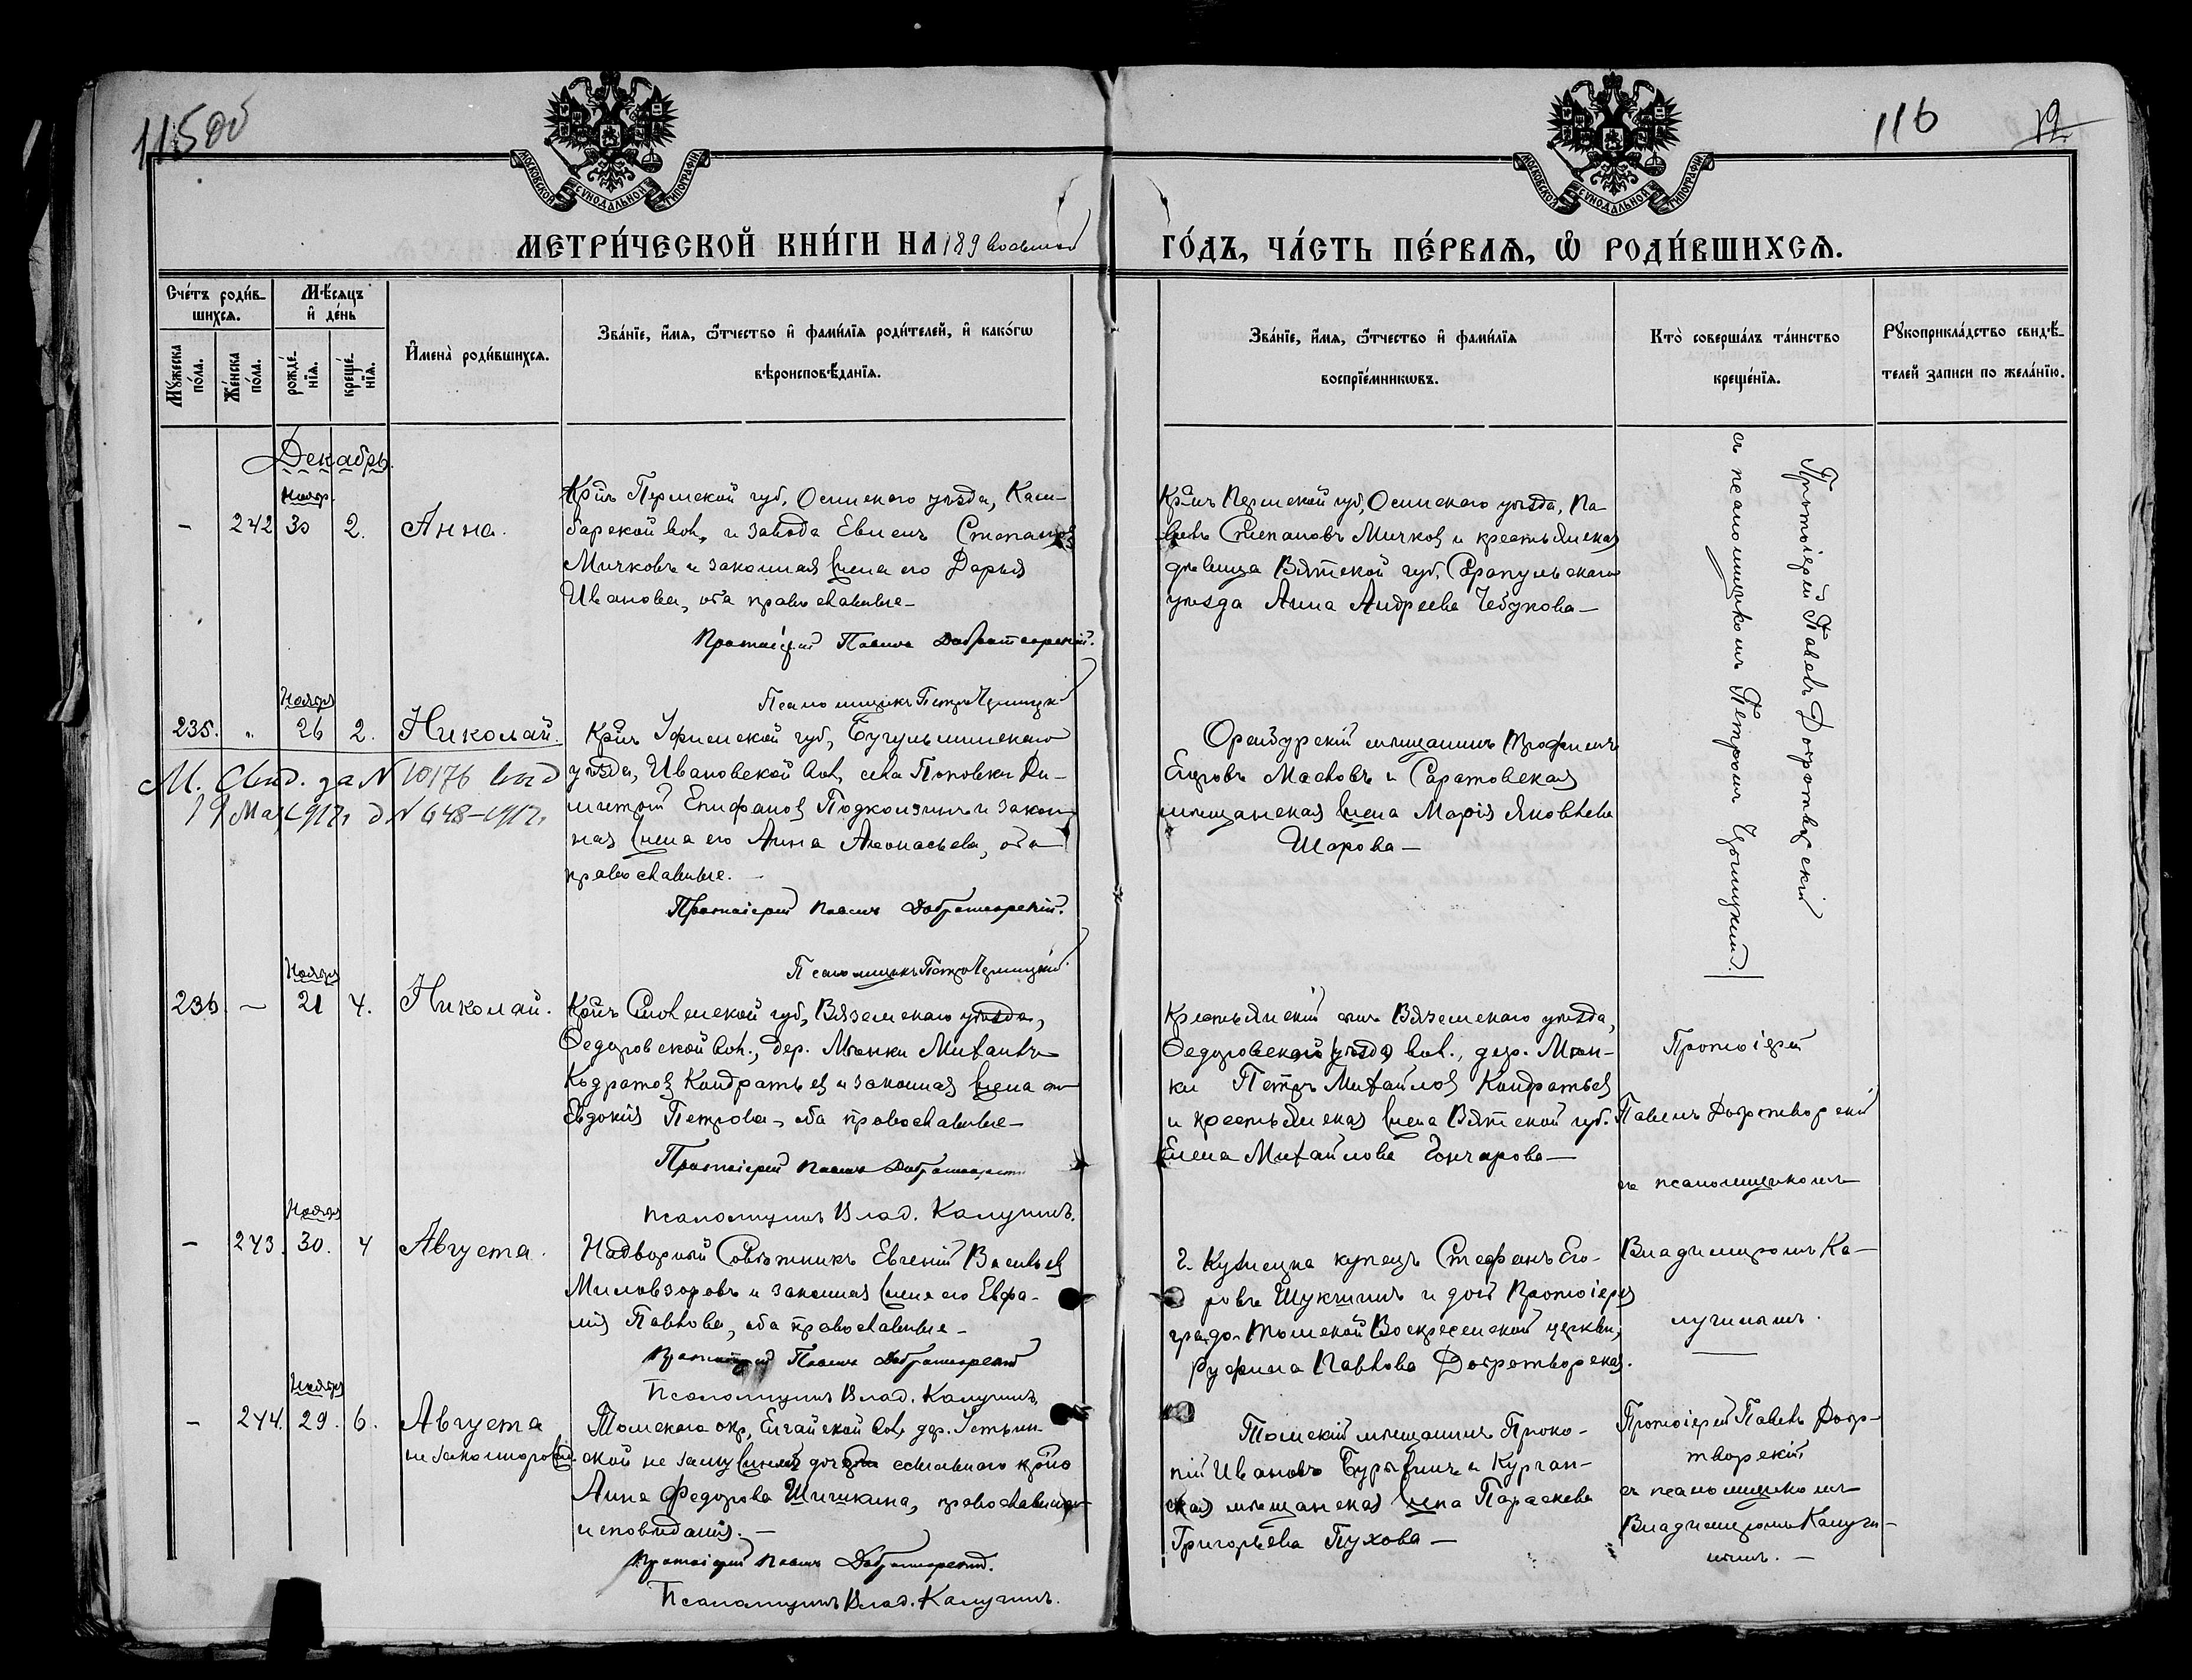 115 об
116
12
МОСКОВСКОЙ СѴНОДАЛЬНОЙ ТИПОГРАФІИ
МОСКОВСКОЙ СѴНОДАЛЬНОЙ ТИПОГРАФІИ
МЕТРИ́ЧЕСКОЙ КНИ́ГИ НА 189 восьмой
ГО́ДЪ, ЧА́СТЬ ПЕ́РВАѦ, Ѡ҆ РОДИ́ВШИХСѦ.
Сче́тъ роди́в-
шихсѧ.
Мѣ́сѧцъ
и҆ де́нь
Мꙋ́жеска
по́ла.
Же́нска
по́ла.
рожде́-
нїѧ.
креще́-
нїѧ.
И҆мена̀ роди́вшихсѧ.
Зва́нїе, и҆́мѧ, ѻ҆́тчество и҆ фами́лїѧ роди́телей, и҆ како́гѡ
вѣроисповѣ́данїѧ.
Зва́нїе, и҆́мѧ, ѻ҆́тчество и҆ фами́лїѧ
воспрїе́мникѡвъ.
Кто̀ соверша́лъ та́инство
креще́нїѧ.
Рꙋкоприкла́дство свидѣ́-
телей записи по жела́нїю.
Декабрь.
Ноябр.
- 242 30 2. Анна.
Кр҃нъ Пермской губ, Осинскаго уѣзда, Кам-
барской вол. и завода Евменъ Степановъ
Мичковъ и законная жена его Дарья
Иванова, оба православные -
Протоіерей Павелъ Добротворскій.
Псаломщикъ Петръ
Кр҃нъ Пермской губ, Осинскаго уѣзда, Па-
велъ Степановъ Мичковъ и крестьянская
дѣвица Вятской губ, Сарапульскаго
уѣзда Анна Андреева Чебукова -
Протоіерей Павелъ Добротворскій
съ псаломщикомъ Петромъ
Ноября
235. " 26 2. Николай.
М. Свид. за № 10176 выд
19 Мая 1917г. д № 648-1917г.
Кр҃нъ Уфимской губ, Бугульминскаго
уѣзда, Ивановской вол, села Поповки Ди-
митрій Епифановъ Подкользинъ и закон-
ная жена его Анна Аѳонасьева, оба
православные. -
Протоіерей Павелъ Добротворскій.
Псаломщикъ Петръ
Оренбургскій мѣщанинъ Трофимъ
Егоровъ Масловъ и Саратовская
мѣщанская жена Марія Яковлева
Шарова -
Ноября
236. - 21 4. Николай.
Кр҃нъ Смоленской губ, Вяземскаго уѣзда,
Федоровской вол., дер. Михаилъ
Кодратов Кондратьев и законная жена его
Евдокія Петрова, оба православные -
Протоіерей Павелъ Добротворскій
Псаломщикъ Влад. Калугинъ.
Крестьянскій сынъ Вяземскаго уѣзда,
Федоровской (уѣзда) вол., дер.
ки Петръ Михайловъ Кондратьевъ
и крестьянская жена Вятской губ.
Елена Михайлова Гончарова -
Протоіерей
Павелъ Добротворскій
съ псаломщикомъ
Владимиромъ Ка-
лугинымъ.
Ноября
- 243. 30. 4 Августа.
Надворный Совѣтникъ Евгеній Васильев
Миловзоровъ и законная жена его Евфа-
мія Павлова, оба православные -
Протоіерей Павелъ Добротворскій
Псаломщикъ Влад. Калугинъ.
г. Кузнецка купецъ Стефанъ Его-
ровъ Шукшинъ и дочь Протоіерея
градо-Томской Воскресенской церкви,
Руфина Павлова Добротворская.
Ноября
- 244. 29. 6. Августа
незаконнорожд.
Томскаго окр, Елгайской вол, дер. Усть-
ской не замужняя дочь ссыльнаго кр҃на
Анна Федорова Шишкина, православнаго
исповѣданія. -
Протоіерей Павелъ Добротворскій.
Псаломщикъ Влад. Калугинъ.
Томскій мѣщанинъ Проко-
пій Ивановъ и Курган-
ская мѣщанская жена Параскева
Григорьева Пухова -
Протоіерей Павелъ Добро-
творскій
съ псаломщикомъ
Владимиромъ Калуги-
нымъ. -